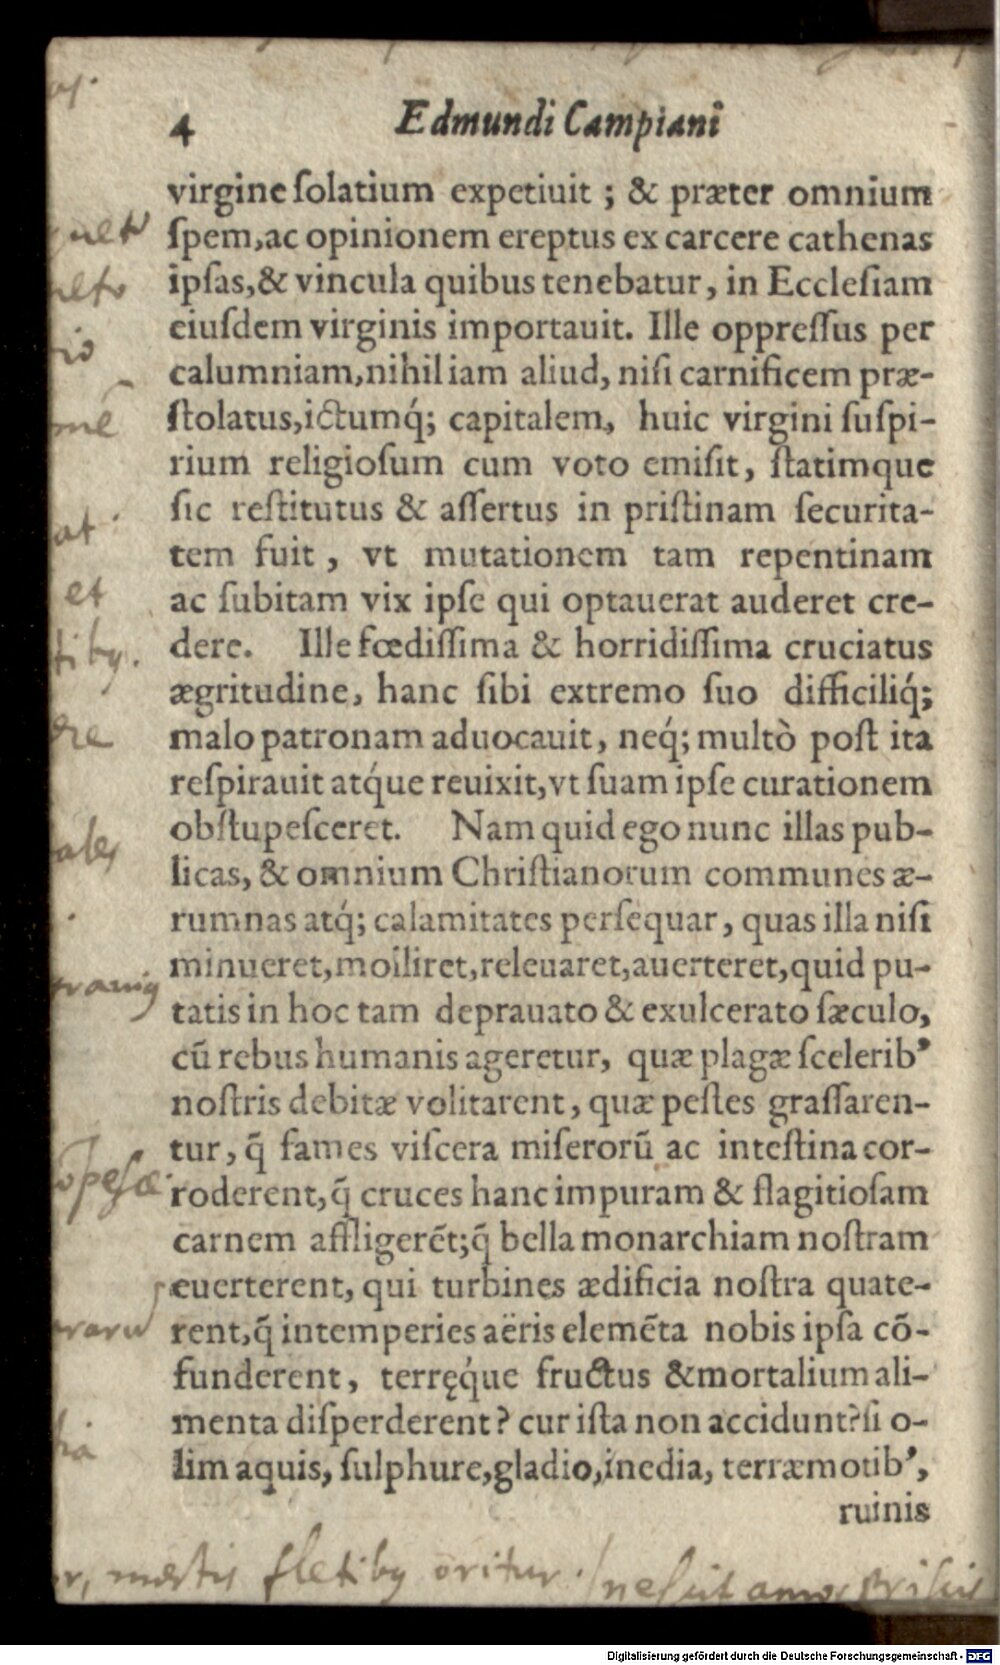 4 Edmundi Campiani
virgine ſolatium expetiuit ; & præter omnium
ſpem, ac opinionem ereptus ex carcere cathenas
ipſas, & vincula quibus tenebatur, in Eccleſiam
eiuſdem virginis importauit. Ille oppreſſus per
calumniam, nihil iam aliud, niſi carnificem præ-
ſtolatus, ictumq́; capitalem, huic virgini ſuſpi-
rium religioſum cum voto emiſit, ſtatimque
ſic reſtitutus & aſſertus in priſtinam ſecurita-
tem fuit , vt mutationem tam repentinam
ac ſubitam vix ipſe qui optauerat auderet cre-
dere. Ille fœdiſſima & horridiſſima cruciatus
ægritudine, hanc ſibi extremo ſuo difficiliq́;
malo patronam aduocauit, neq́; multò poſt ita
reſpirauit atq́ue reuixit, vt ſuam ipſe curationem
obſtupeſceret. Nam quid ego nunc illas pub-
licas, & omnium Chriſtianorum communes æ-
rumnas atq́; calamitates perſequar, quas illa niſi
minueret, molliret, releuaret, auerteret, quid pu-
tatis in hoc tam deprauato & exulcerato ſæculo,
cū rebus humanis ageretur, quæ plagæ ſceleribꝰ
noſtris debitæ volitarent, quæ peſtes graſſaren-
tur, q̄ fames viſcera miſerorū ac inteſtina cor-
roderent, q̄ cruces hanc impuram & flagitioſam
carnem affligerēt; q̄ bella monarchiam noſtram
euerterent, qui turbines ædificia noſtra quate-
rent, q̄ intemperies aëris elemēta nobis ipſa cō-
funderent, terręq́ue fructus & mortalium ali-
menta diſperderent? cur iſta non accidunt? ſi o-
lim aquis, ſulphure, gladio, inedia, terræmotibꝰ,
ruinis
et
fletibꝫ oritur.
Digitalisierung gefördert durch die Deutsche Forschungsgemeinschaft - DFG